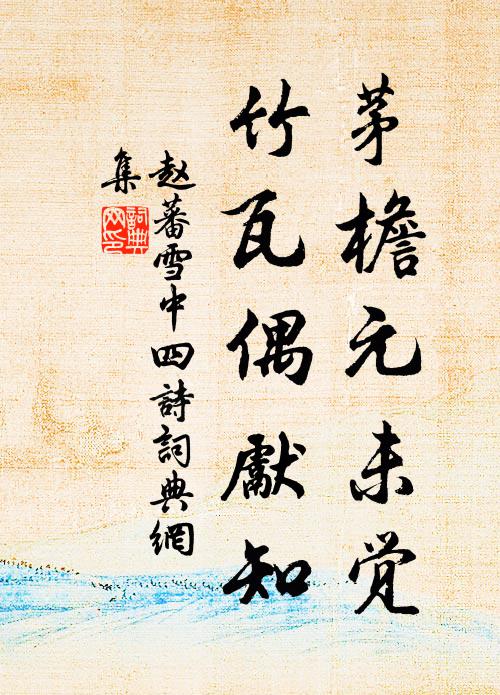 茅檐元未觉
竹瓦偶獻知
赵蕃雪中四詩詞典網
集
詞典
网印